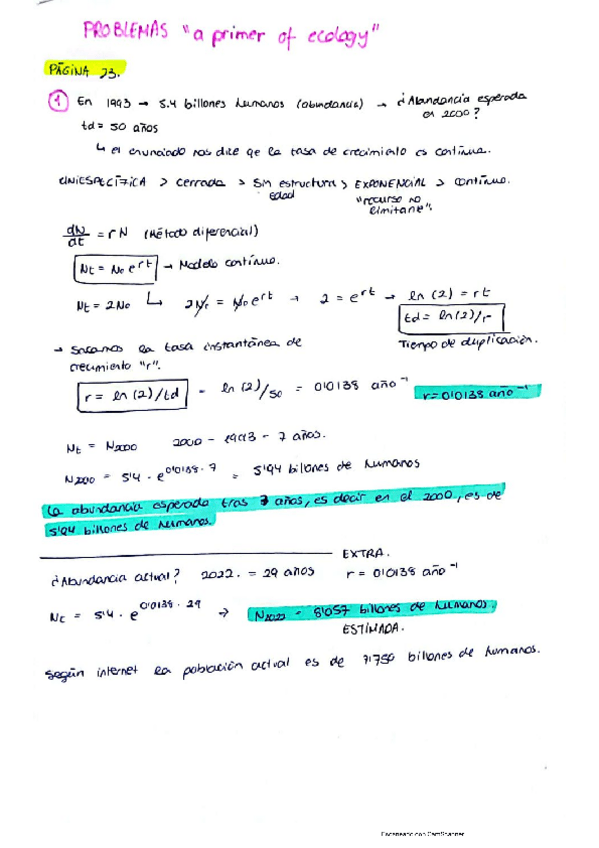 PROBLEMAS "a primer of ecology"
PÁGINA 23.
① En 1993 → 5.4 billones humanos (abundancia) → ¿Abundancia esperada en 2000?
td = 50 años
↳ el enunciado nos dice qe la tasa de crecimiento es contínua.
UNIESPECÍFICA > cerrada > sin estructura > EXPONENCIAL > contínuo.
edad "recurso no limitane".
dN/dt = rN (Método diferencial)
Nt = N₀ e^rt → Modelo contínuo.
Nt = 2N₀ ↳ 2N₀ = N₀ e^rt → 2 = e^rt → ln(2) = rt
td = ln(2)/r
→ Sacamos la tasa instantánea de Tiempo de duplicación.
crecimiento "r".
r = ln(2)/td = ln(2)/50 = 0'0138 año⁻¹ r = 0'0138 año⁻¹
Nt = N2000 2000 - 1993 = 7 años.
N2000 = 5'4 · e^0'0138·7 = 5'94 billones de humanos
La abundancia esperada tras 7 años, es decir en el 2000, es de
5'94 billones de humanos.
EXTRA.
¿Abundancia actual? 2022. = 29 años r = 0'0138 año⁻¹
Nt = 5'4 · e^0'0138·29 → N2022 = 8'057 billones de humanos.
ESTIMADA.
Según internet la población actual es de 7'750 billones de humanos.
Escaneado con CamScanner